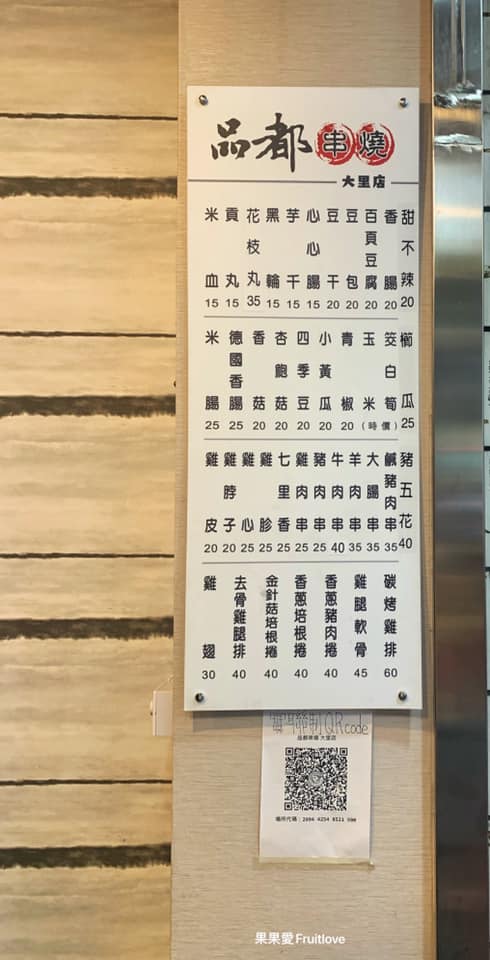 品都串燒
大里店
甜不辣 20
香腸 20
百頁豆腐 20
豆包 20
豆干 20
心心腸 15
芋千 15
黑輪 15
花枝丸 35
貢丸 15
米血 15
櫛瓜 25
筊白筍
玉米
(時價)
青椒 20
小黃瓜 20
四季豆 20
杏鮑菇 20
香菇 20
德國香腸 25
米腸 25
豬五花 40
鹹豬肉串 35
大腸串 35
羊肉串 35
牛肉串 40
豬肉串 25
雞肉串 25
七里香 25
雞胗 25
雞心 25
雞脖子 20
雞皮 20
碳烤雞排 60
雞腿軟骨 45
香蔥豬肉捲 40
香蔥培根捲 40
金針菇培根捲 40
去骨雞腿排 40
雞翅 30
QRcode
品都串燒 大里店
場所代碼：2094 4254 8521
果果愛Fruitlove